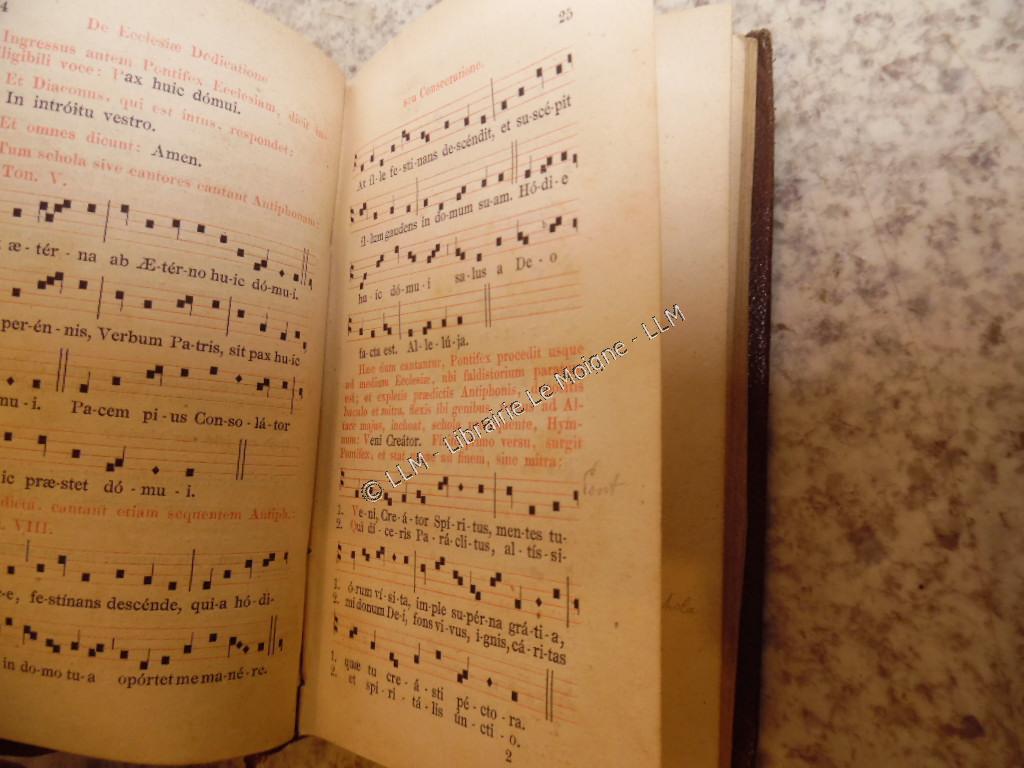 4
De Ecclesiæ Dedicatione
Ingressus autem Pontifex Ecclesiam, dicit in-
lligibili voce: Pax huic dómui.
Et Diaconus, qui est intus, respondet:
In intróitu vestro.
Et omnes dicunt: Amen.
Tum schola sive cantores cantant Antiphonam:
Ton. V.
æ-tér-na ab Æ-tér-no hu-ic dó-mu-i.
per-én-nis, Verbum Pa-tris, sit pax hu-ic
mu-i. Pa-cem pi-us Con-so-lá-tor
ic præ-stet dó-mu-i.
dicta, cantant etiam sequentem Antiph.:
VIII.
e, fe-stínans descénde, qui-a hó-di-
in do-mo tu-a opórtet me ma-né-re.
25
seu Consecratione.
At il-le fe-sti-nans de-scéndit, et su-scé-pit
il-lum gaudens in do-mum su-am. Hó-di-e
hu-ic dó-mu-i sa-lus a De-o
fa-cta est. Al-le-lú-ja.
Hæc dum cantantur, Pontifex procedit usque
ad medium Ecclesiæ, ubi faldistorium
est; et expletis prædictis Antiphonis,
baculo et mitra, flexis ibi genibus, ad Al-
tare majus, inchoat, schola Hym-
num: Veni Creátor. versu, surgit
Pontifex, et stat ad finem, sine mitra:
1. Ve-ni, Cre-á-tor Spí-ri-tus, men-tes tu-
2. Qui dí-ce-ris Pa-rá-cli-tus, al-tís-si-
1. ó-rum ví-si-ta, im-ple su-pér-na grá-ti-a,
2. mi donum De-i, fons vi-vus, i-gnis, cá-ri-tas
1. quæ tu cre-á-sti pé-cto-ra.
2. et spi-ri-tá-lis ún-cti-o.
2
© LLM - Librairie Le Moigne - LLM